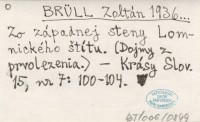 BRÜLL Zoltán 1936...
Zo západnej steny Lom-
nického štítu. (Dojmy z
prvolezenia.) – Krásy Slov.
15, nr 7: 100-104.
67/006/0849